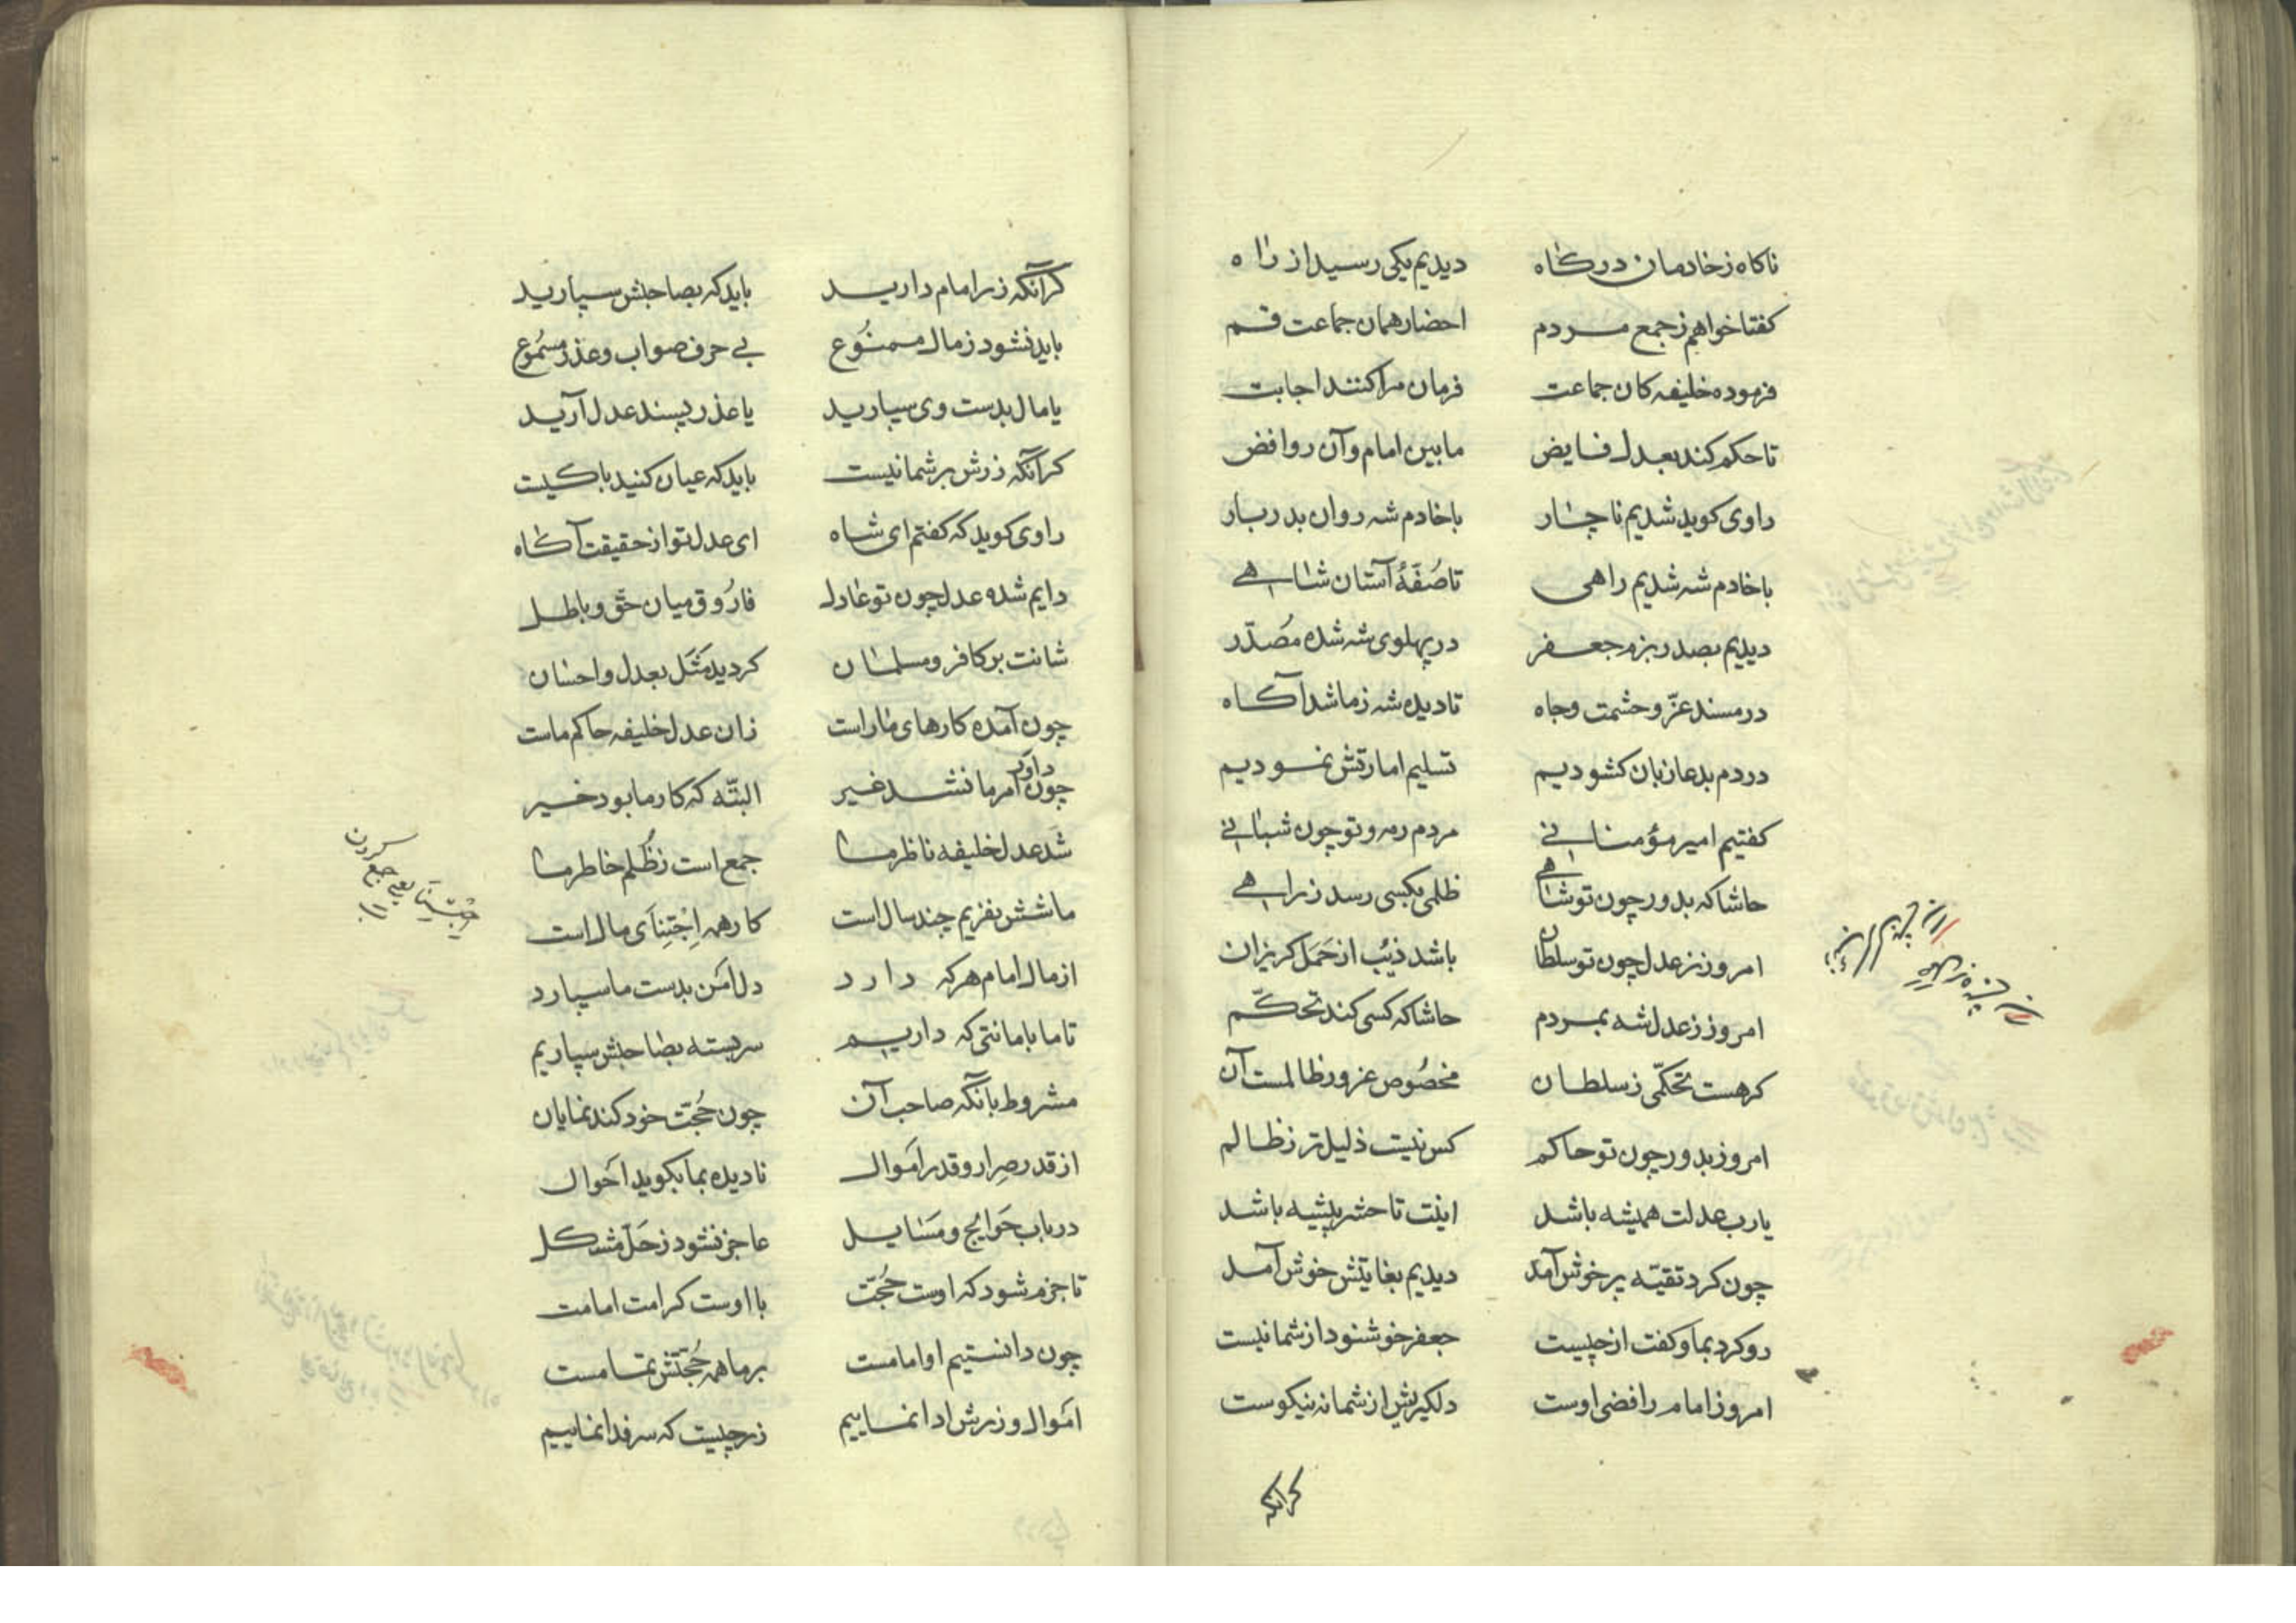 ناکاه زخادمان درکاه دیدیم یکی رسید از راه
کفتا خواهم زجمع مردم احضار همان جماعت قم
فرموده خلیفه کان جماعت فرمان مرا کنند اجابت
تا حکم کند بعدل فایض مابین امام وآن روافض
راوی کوید شدیم ناچار باخادم شه روان بدربار
باخادم شه شدیم راهی تا صُفّهٔ آستان شاهی
دیدیم بصدر بزم جعفر در پهلوی شه شده مُصدّر
در مسند عزّ و حشمت وجاه تا دیده شه زما شد آکاه
در دم بدعا زبان کشودیم تسلیم امارتش نمودیم
کفتیم امیر مؤمنانی مردم رمه و تو چون شبانی
حاشا که بدور چون تو شاهی ظلمی بکسی رسد زراهی
امروز زعدل چون تو سلطان باشد ذیب از حَمَل کریزان
امروز زعدل شه بمردم حاشا که کسی کند تحکّم
کرهست تحکّمی زسلطان مخصُوص غرور ظالمست آن
امروز بدور چون تو حاکم کس نیست ذلیل تر زظالم
یارب عدلت همیشه باشد اینت تا حشر پیشه باشد
چون کرد تقیّه پر خوش آمد دیدیم بغایتش خوش آمد
رو کرد بما و کفت از چیست جعفر خوشنود از شما نیست
امروز امام رافضی اوست دلکیریش از شما نه نیکوست
کرانکه
کرآنکه زر امام دارید باید که بصاحبش سپارید
باید نشود زمال ممنُوع بی حرف صواب و عذر مسمُوع
یا مال بدست وی سپارید یا عذر پسند عدل آرید
کرآنکه زرش بر شما نیست باید که عیان کنید با کیست
راوی کوید که کفتم ای شاه ای عدل تو از حقیقت آکاه
دایم شده عدل چون تو عادل فارُوق میان حقّ و باطل
شانت بر کافر و مسلمان کردید مَثَل بعدل و احسان
چون آمده کارهای ما راست زان عدل خلیفه حاکم ماست
چون داور امر ما نشد غیر البتّه که کار ما بود خیر
شد عدل خلیفه ناظر ما جمع است زظُلم خاطر ما
ما شش نفریم چند سال است کار همه اِجْتِنای مال است
اِجْتِنا یعنی جمع کردن
از مال امام هر که دارد دل اَمن بدست ما سپارد
تا ما بامانتی که داریم سربسته بصاحبش سپاریم
مشروط بآنکه صاحب آن چون حُجّت خود کند نمایان
از قدر صِرار و قدر اَموال نادیده بما بکوید احَوال
در باب حَوایج و مَسایل عاجز نشود زحَلّ مشکل
تا جزم شود که اوست حُجّت با اوست کرامت امامت
چون دانستیم او امامست بر ما همه حُجّتش تمامست
امَوال و زرش ادا نماییم زر چیست که سر فدا نماییم